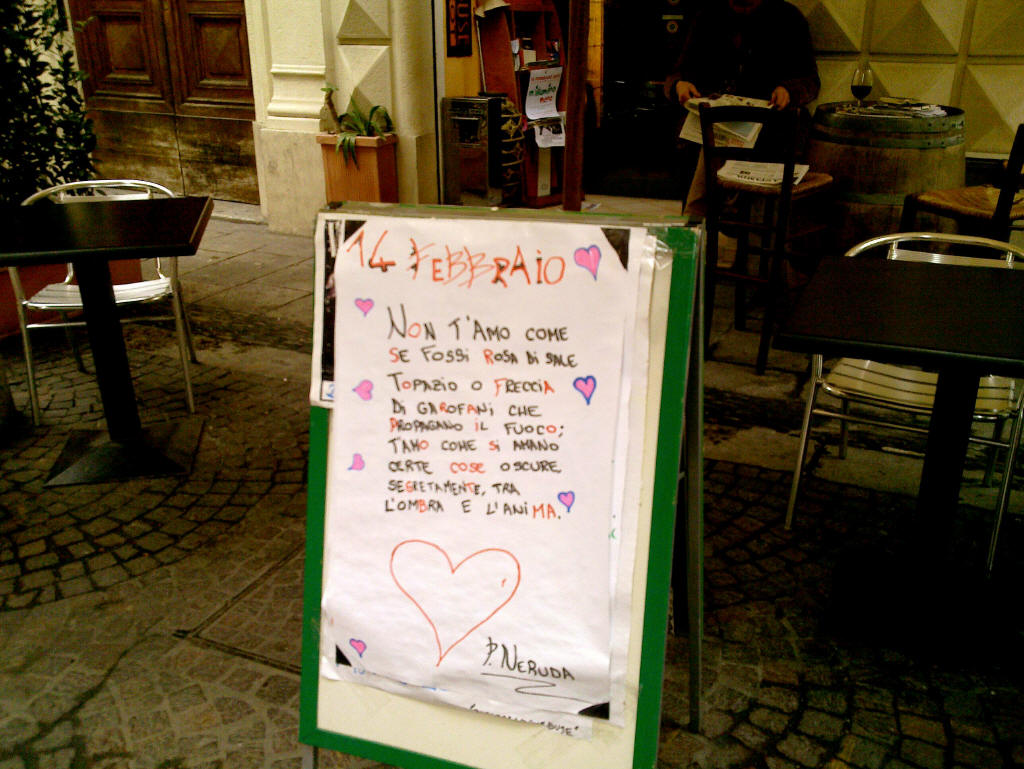 14 FEBBRAIO
NON T'AMO COME
SE FOSSI ROSA DI SALE
TOPAZIO O FRECCIA
DI GAROFANI CHE
PROPAGANO IL FUOCO;
T'AMO COME SI AMANO
CERTE COSE OSCURE
SEGRETAMENTE, TRA
L'OMBRA E L'ANIMA.
P. NERUDA